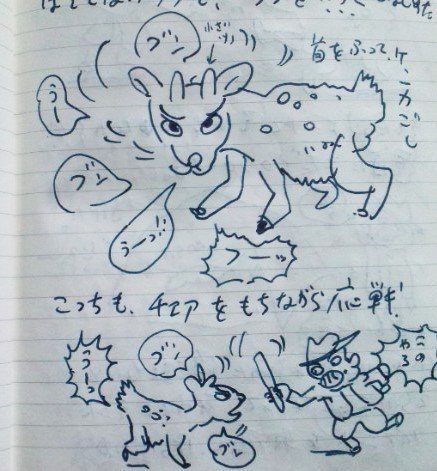 ブン
首をふって、ケンカごし
うー
ブン
うーっ!!
フーッ
こっちも、チェアをもちながら応戦!
ううーっ
ブン
このやろ
ブン